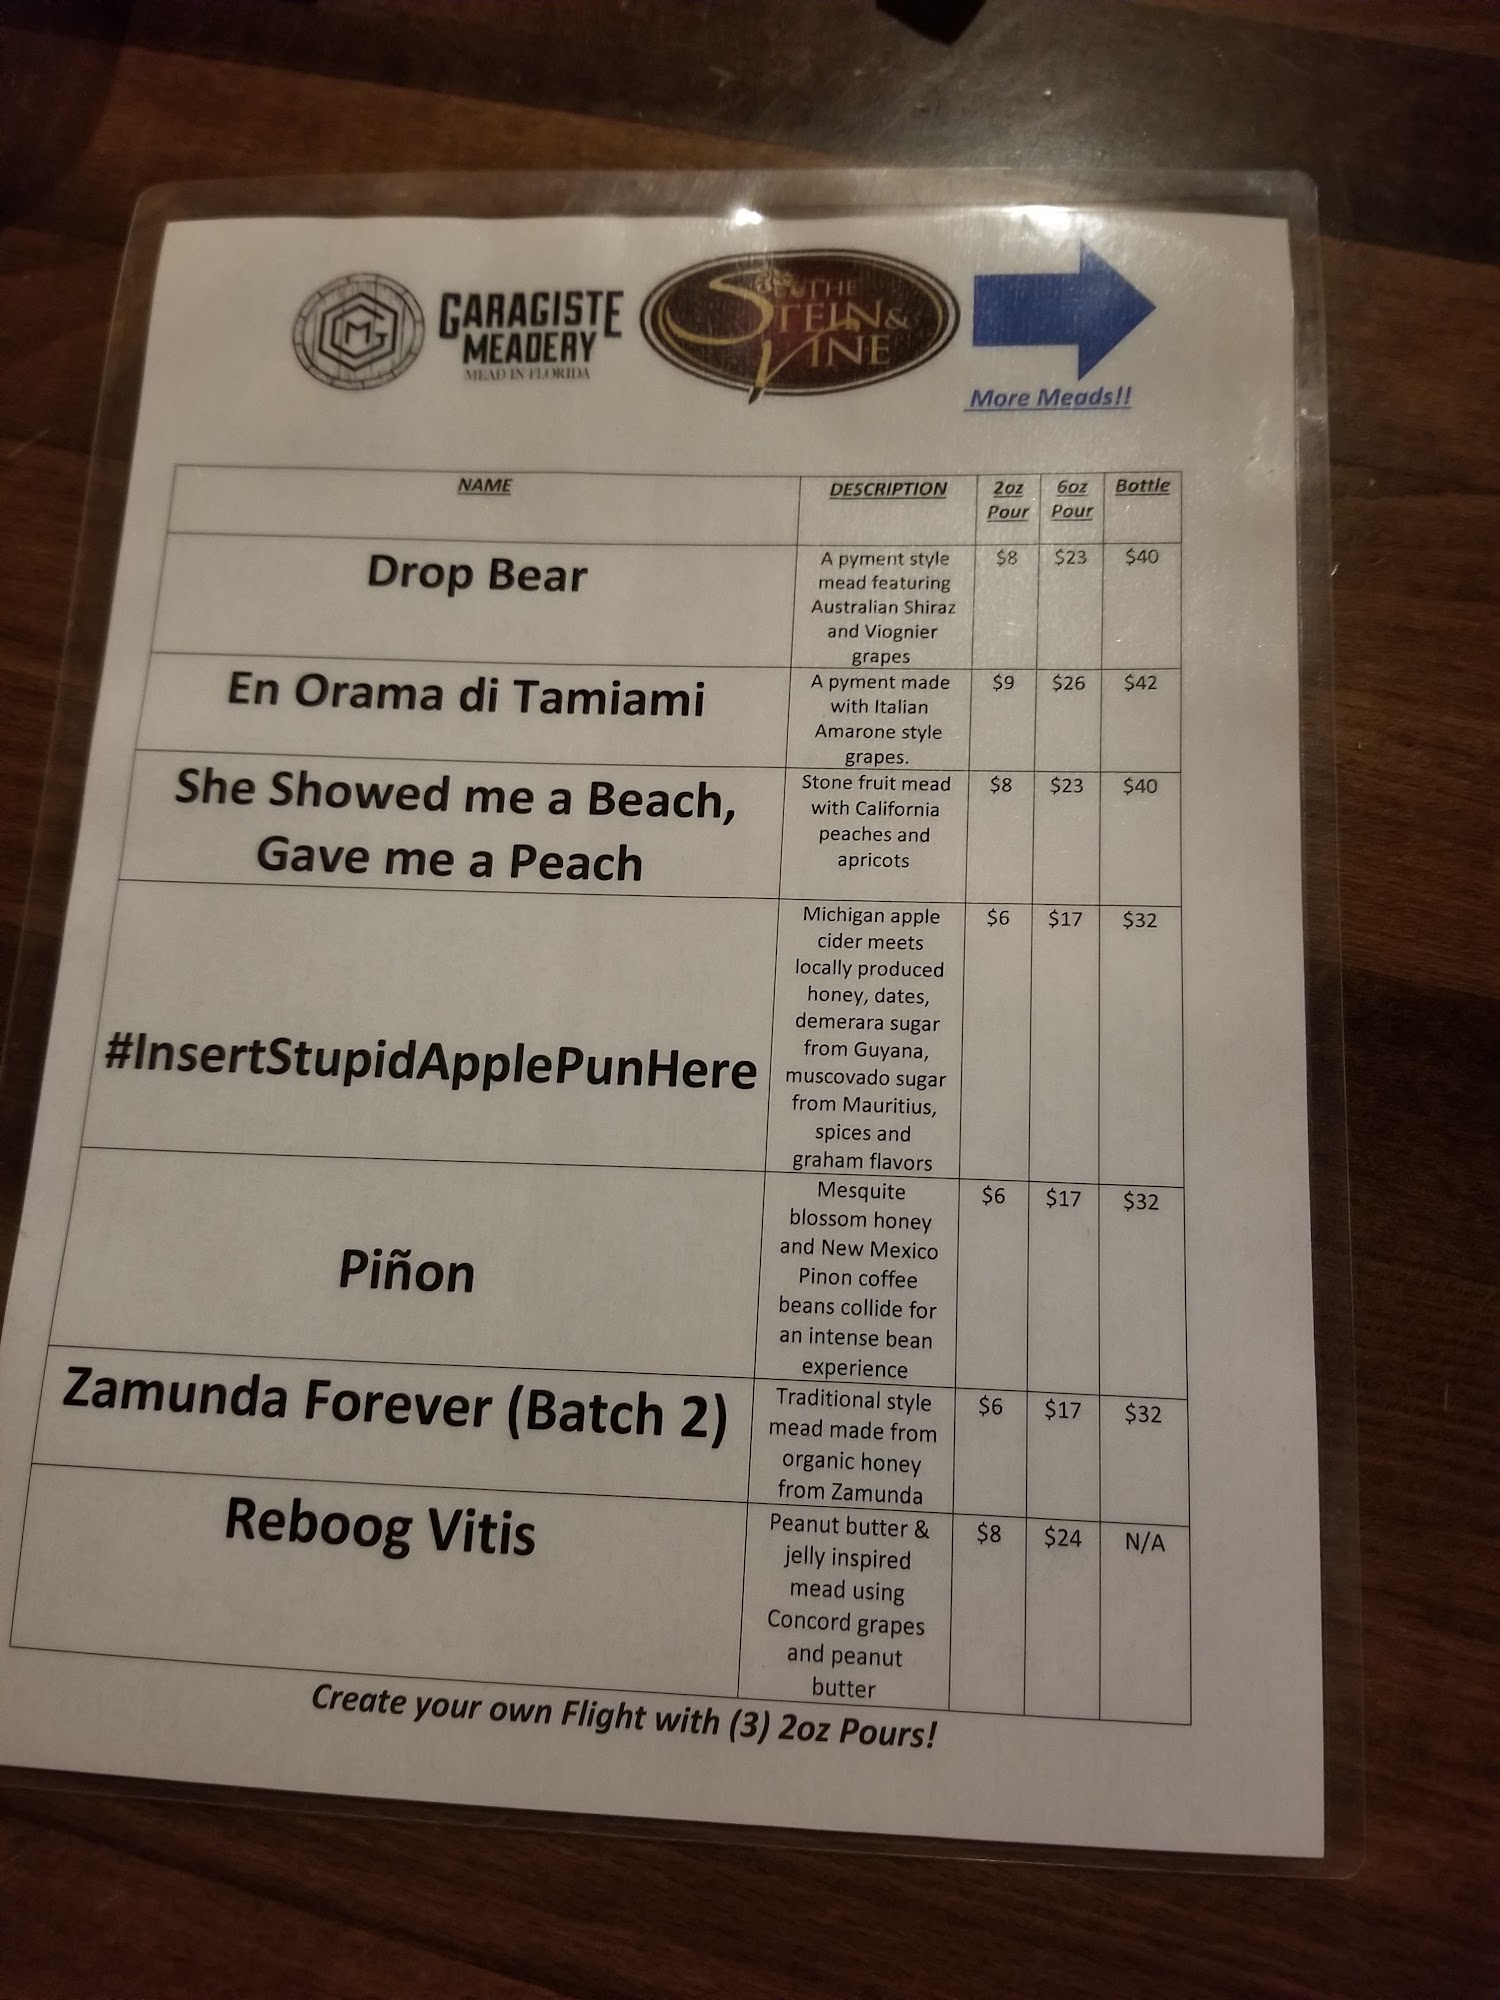 MG
GARAGISTE
MEADERY
MEAD IN FLORIDA
THE
STEIN &
VINE
More Meads!!
NAME DESCRIPTION 2oz Pour 6oz Pour Bottle
Drop Bear
A pyment style
mead featuring
Australian Shiraz
and Viognier
grapes
$8 $23 $40
En Orama di Tamiami
A pyment made
with Italian
Amarone style
grapes.
$9 $26 $42
She Showed me a Beach,
Gave me a Peach
Stone fruit mead
with California
peaches and
apricots
$8 $23 $40
#InsertStupidApplePunHere
Michigan apple
cider meets
locally produced
honey, dates,
demerara sugar
from Guyana,
muscovado sugar
from Mauritius,
spices and
graham flavors
$6 $17 $32
Piñon
Mesquite
blossom honey
and New Mexico
Pinon coffee
beans collide for
an intense bean
experience
$6 $17 $32
Zamunda Forever (Batch 2)
Traditional style
mead made from
organic honey
from Zamunda
$6 $17 $32
Reboog Vitis
Peanut butter &
jelly inspired
mead using
Concord grapes
and peanut
butter
$8 $24 N/A
Create your own Flight with (3) 2oz Pours!